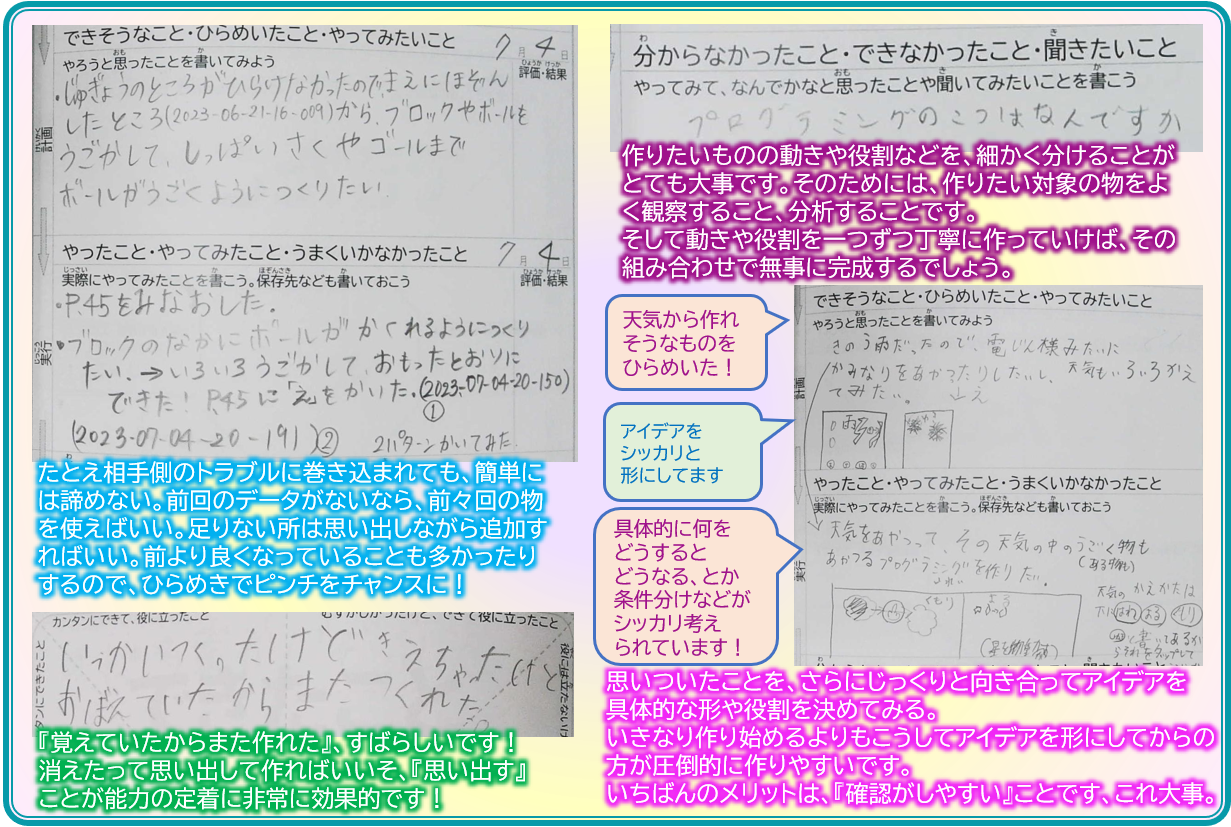 できそうなこと・ひらめいたこと・やってみたいこと
7月4日
やろうと思ったことを書いてみよう
評価・結果
・じゅぎょうのところがひらけなかったのでまえにほぞん
したところ(2023-06-21-16-009)から、ブロックやボールを
うごかして、しっぱいさくやゴールまで
ボールがうごくようにつくりたい
計画
やったこと・やってみたこと・うまくいかなかったこと
7月4日
実際にやってみたことを書こう。保存先なども書いておこう
評価・結果
・P.45をみなおした。
・ブロックのなかにボールがかくれるようにつくり
たい、→いろいろうごかして、おもったとおりに
できた! P.45に「え」をかいた。(2023-07-04-20-150)
①
(2023-07-04-20-191)②
2パターンかいてみた。
実行
たとえ相手側のトラブルに巻き込まれても、簡単に
は諦めない。前回のデータがないなら、前々回の物
を使えばいい。足りない所は思い出しながら追加す
ればいい。前より良くなっていることも多かったり
するので、ひらめきでピンチをチャンスに！
カンタンにできて、役に立ったこと
むずかしかったけど、できて役に立ったこと
いっかいつくったけどきえちゃったけど
おぼえていたからまたつくれた
『覚えていたからまた作れた』、すばらしいです！
消えたって思い出して作ればいいそ、『思い出す』
ことが能力の定着に非常に効果的です！
分からなかったこと・できなかったこと・聞きたいこと
やってみて、なんでかなと思ったことや聞いてみたいことを書こう
プログラミングのこつはなんですか
作りたいものの動きや役割などを、細かく分けることが
とても大事です。そのためには、作りたい対象の物をよ
く観察すること、分析することです。
そして動きや役割を一つずつ丁寧に作っていけば、その
組み合わせで無事に完成するでしょう。
天気から作れ
そうなものを
ひらめいた！
アイデアを
シッカリと
形にしてます
具体的に何を
どうすると
どうなる、とか
条件分けなどが
シッカリ考え
られています！
できそうなこと・ひらめいたこと・やってみたいこと
やろうと思ったことを書いてみよう
きのう雨だったので、電じん様みたいに
かみなりをあやつったりしたいし、天気もいろいろかえ
てみたい。 ↓え
計画
やったこと・やってみたこと・うまくいかなかったこと
実際にやってみたことを書こう。保存先なども書いておこう
天気をあやつって、その天気の中のうごく物も
あやつるプログラミングを作りたい。
天気の かえかたは
くもり
実行
思いついたことを、さらにじっくりと向き合ってアイデアを
具体的な形や役割を決めてみる。
いきなり作り始めるよりもこうしてアイデアを形にしてからの
方が圧倒的に作りやすいです。
いちばんのメリットは、『確認がしやすい』ことです、これ大事。